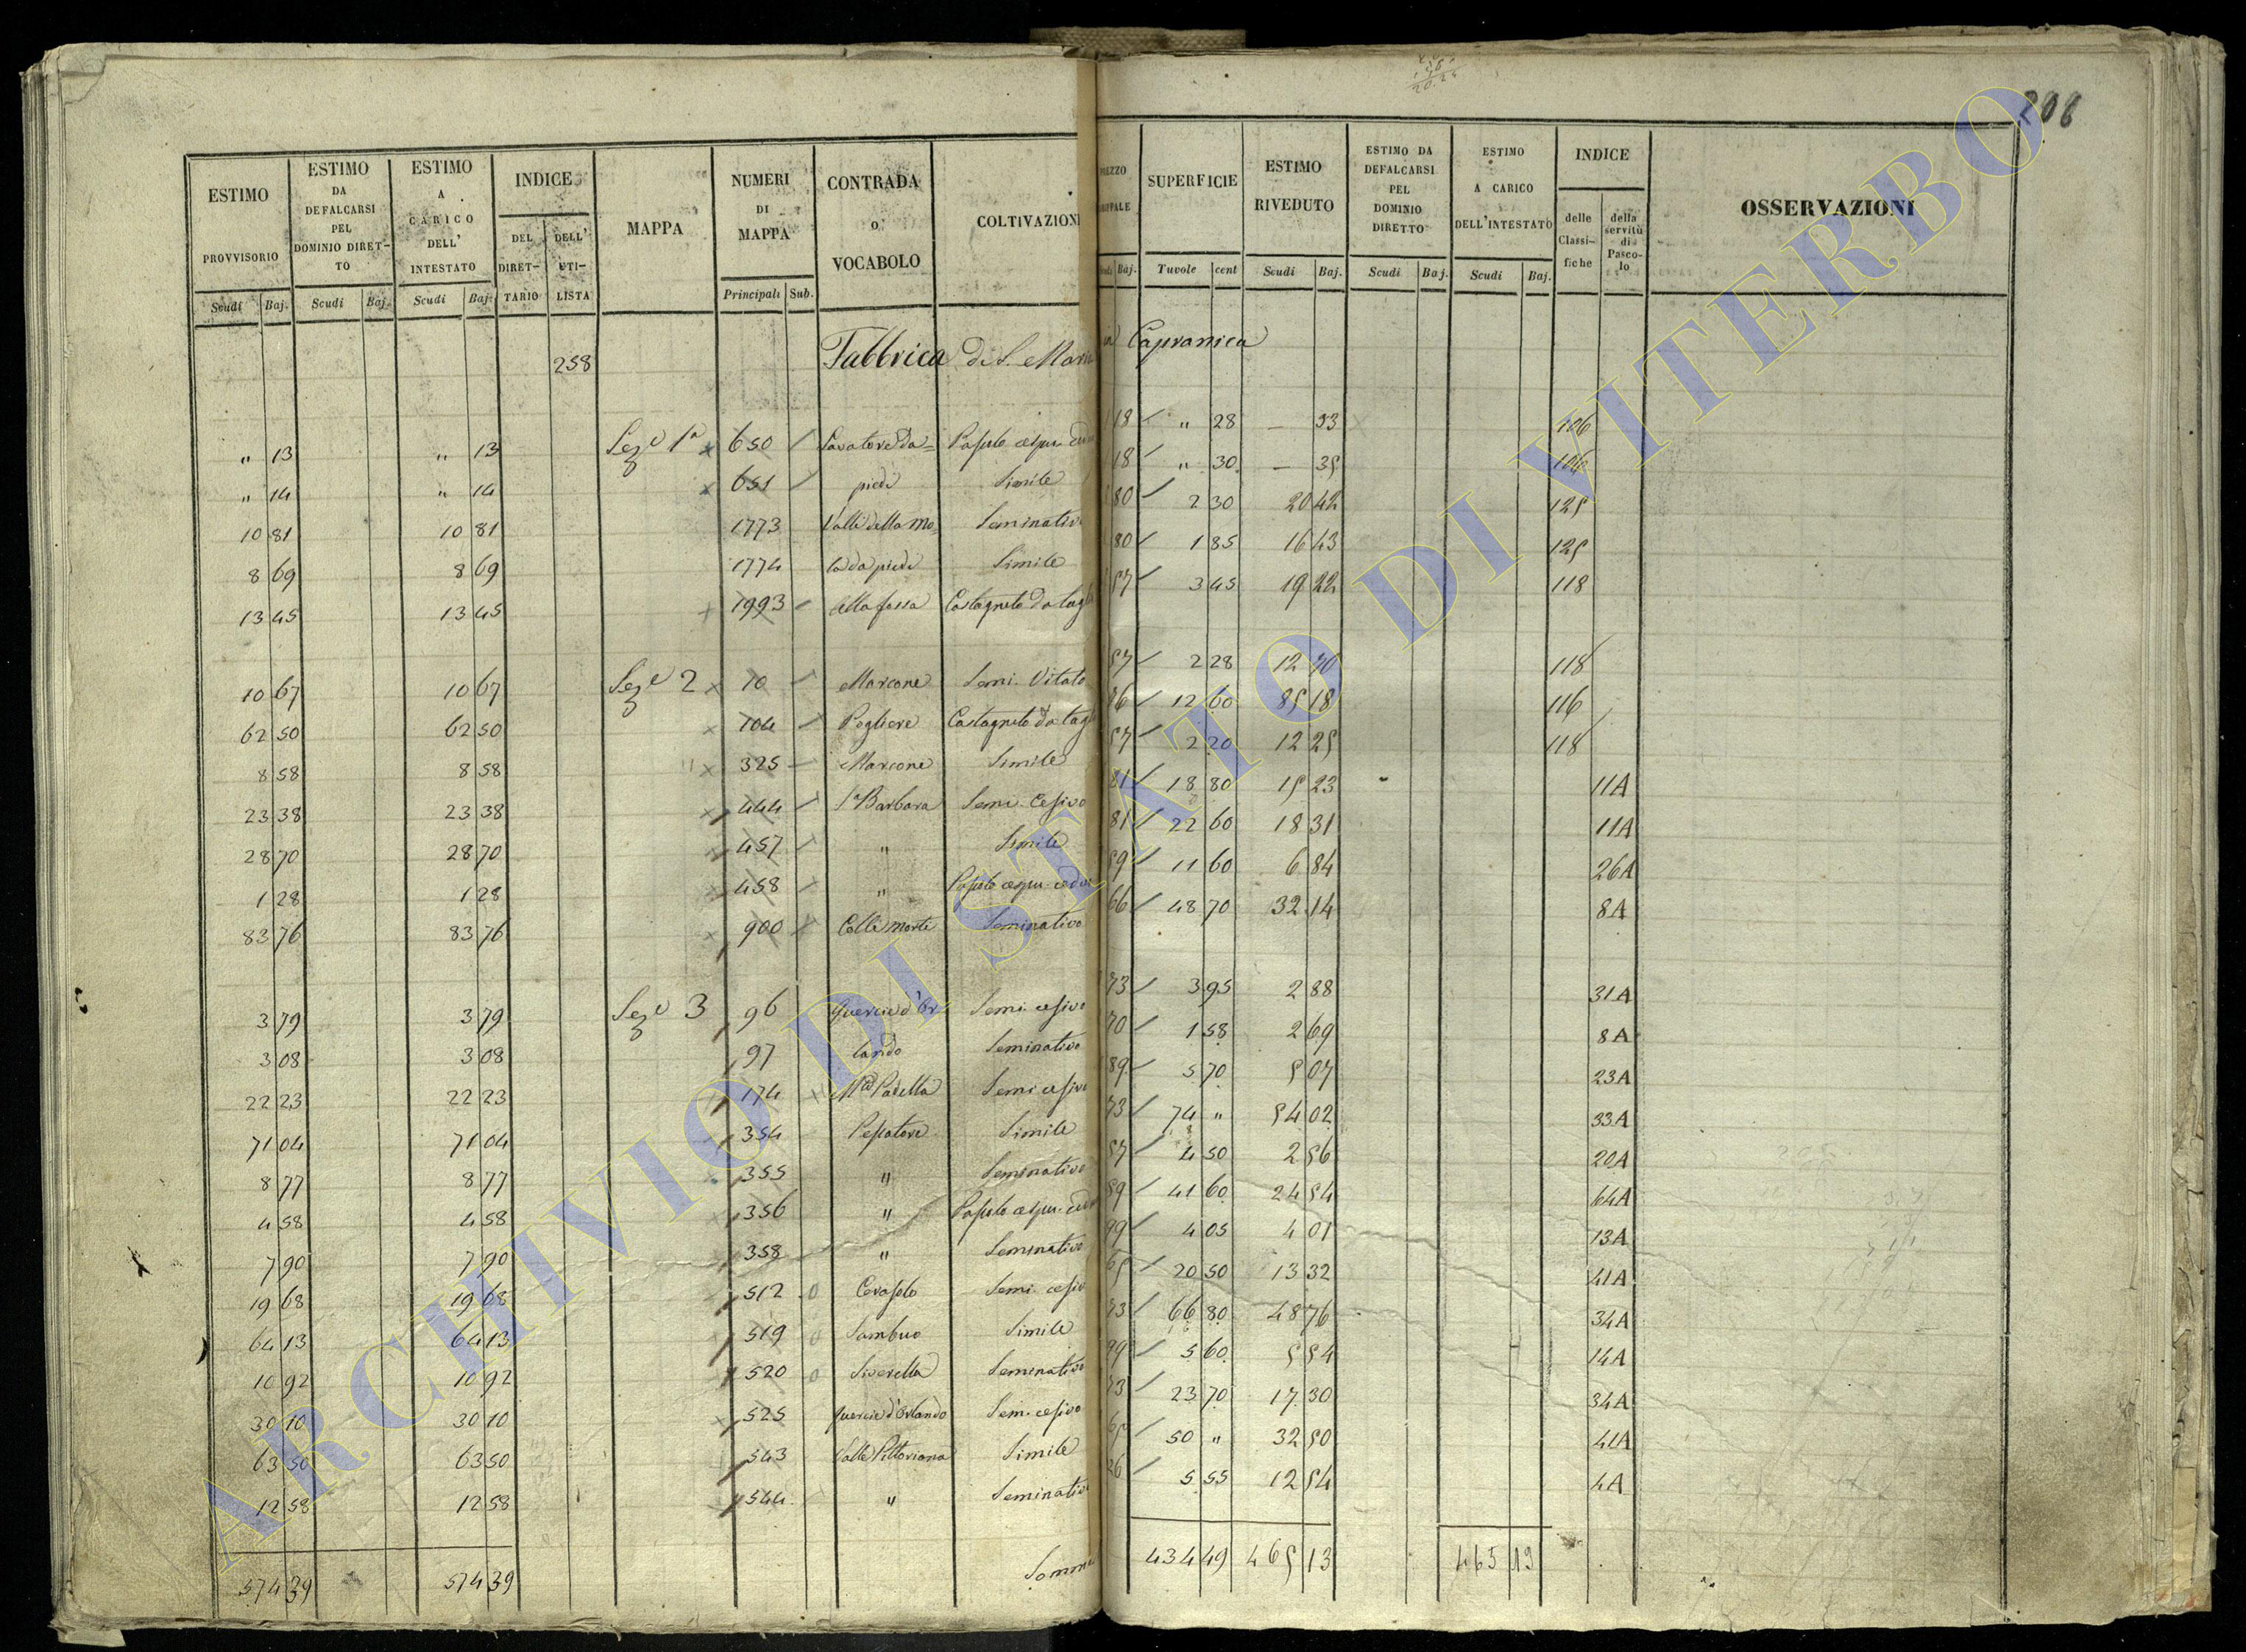 208
ESTIMO PROVVISORIO
ESTIMO DA DEFALCARSI PEL DOMINIO DIRETTO
ESTIMO A CARICO DELL' INTESTATO
INDICE
DEL DIRETTARIO
DELL' UTILISTA
MAPPA
NUMERI DI MAPPA
CONTRADA O VOCABOLO
COLTIVAZION
SUPERFICIE
ESTIMO RIVEDUTO
ESTIMO DA DEFALCARSI PEL DOMINIO DIRETTO
ESTIMO A CARICO DELL'INTESTATO
INDICE
delle Classifiche
della servitù di Pascolo
OSSERVAZIONI
Scudi Baj. Scudi Baj. Scudi Baj. Principali Sub. Baj. Tavole cent Scudi Baj. Scudi Baj. Scudi Baj.
258 Fabbrica di S. Maria Capranica
" 13 " 13 Seze 1a 650 Lavatore da= Pascolo cespu. 18 " 28 — 33 106
" 14 " 14 651 piedi Simile 18 " 30 — 35 106
10 81 10 81 1773 Valle della Mo= Seminativo 80 2 30 20 42 125
8 69 8 69 1774 la da piedi Simile 80 1 85 16 43 125
13 45 13 45 1993 Alla fossa Castagneto da tagl 57 3 45 19 22 118
10 67 10 67 Seze 2 10 Marcone Semi. Vitato 57 2 28 12 70 118
62 50 62 50 104 Pogliere Castagneto da tagl 76 12 60 85 18 116
8 58 8 58 325 Marcone Simile 57 2 20 12 25 118
23 38 23 38 444 Sa Barbara Semi. Cesivo 81 18 80 15 23 11A
28 70 28 70 457 " Simile 81 22 60 18 31 11A
1 28 1 28 458 " Pascolo cespu. ceduo 59 11 60 6 84 26A
83 76 83 76 900 Colle morte Seminativo 66 48 70 32 14 8A
3 79 3 79 Seze 3 96 Quercie d'Or Semi. cesivo 73 3 95 2 88 31A
3 08 3 08 97 lando Seminativo 70 1 58 2 69 8A
22 23 22 23 174 Padella Semi cesivo 89 5 70 5 07 23A
71 04 71 04 354 Pescatore Simile 73 74 " 54 02 33A
8 77 8 77 355 " Seminativo 57 4 50 2 56 20A
4 58 4 58 356 " Pascolo cespu. 59 41 60 24 54 64A
7 90 7 90 358 " Seminativo 99 4 05 4 01 13A
19 68 19 68 512 Cerasolo Semi. cesivo 65 20 50 13 32 41A
64 13 64 13 519 Sambuo Simile 73 66 80 48 76 34A
10 92 10 92 520 Siverella Seminativo 99 5 60 5 54 14A
30 10 30 10 525 Quercie d'Orlando Sem. cesivo 73 23 70 17 30 34A
63 50 63 50 543 Valle Pittoriana Simile 65 50 " 32 50 41A
12 58 12 58 544 " Seminativ 26 5 55 12 54 4A
574 39 574 39 Somm 434 49 465 13 465 13
ARCHIVIO DI STATO DI VITERBO